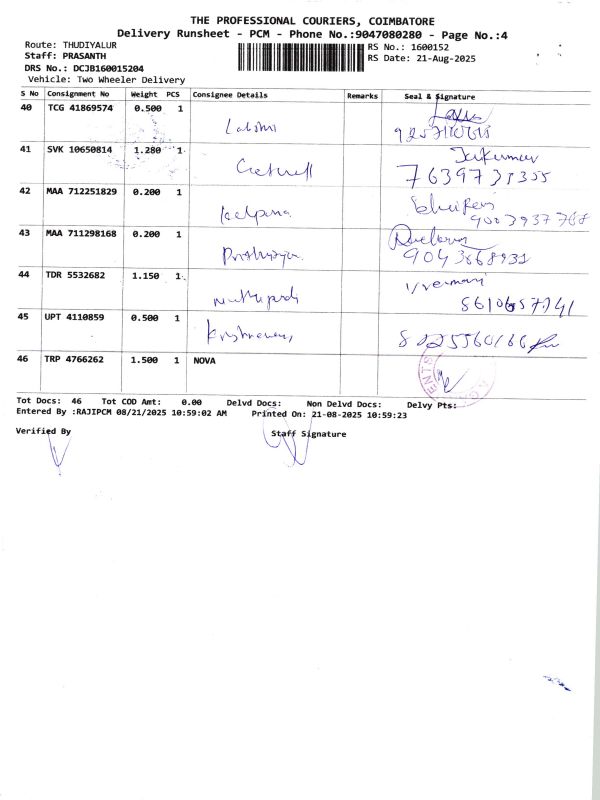 THE PROFESSIONAL COURIERS, COIMBATORE
Delivery Runsheet - PCM - Phone No.:9047080280 - Page No.:4
Route: THUDIYALUR
Staff: PRASANTH
DRS No.: DCJB160015204
Vehicle: Two Wheeler Delivery
RS No.: 1600152
RS Date: 21-Aug-2025
S No Consignment No Weight PCS Consignee Details Remarks Seal & Signature
40 TCG 41869574 0.500 1 Lakshmi
41 SVK 10650814 1.280 1 Jaikumar
42 MAA 712251829 0.200 1 Kalpana 9003937768
43 MAA 711298168 0.200 1 9043868931
44 TDR 5532682 1.150 1
45 UPT 4110859 0.500 1
46 TRP 4766262 1.500 1 NOVA
Tot Docs: 46 Tot COD Amt: 0.00 Delvd Docs: Non Delvd Docs: Delvy Pts:
Entered By :RAJIPCM 08/21/2025 10:59:02 AM Printed On: 21-08-2025 10:59:23
Verified By Staff Signature